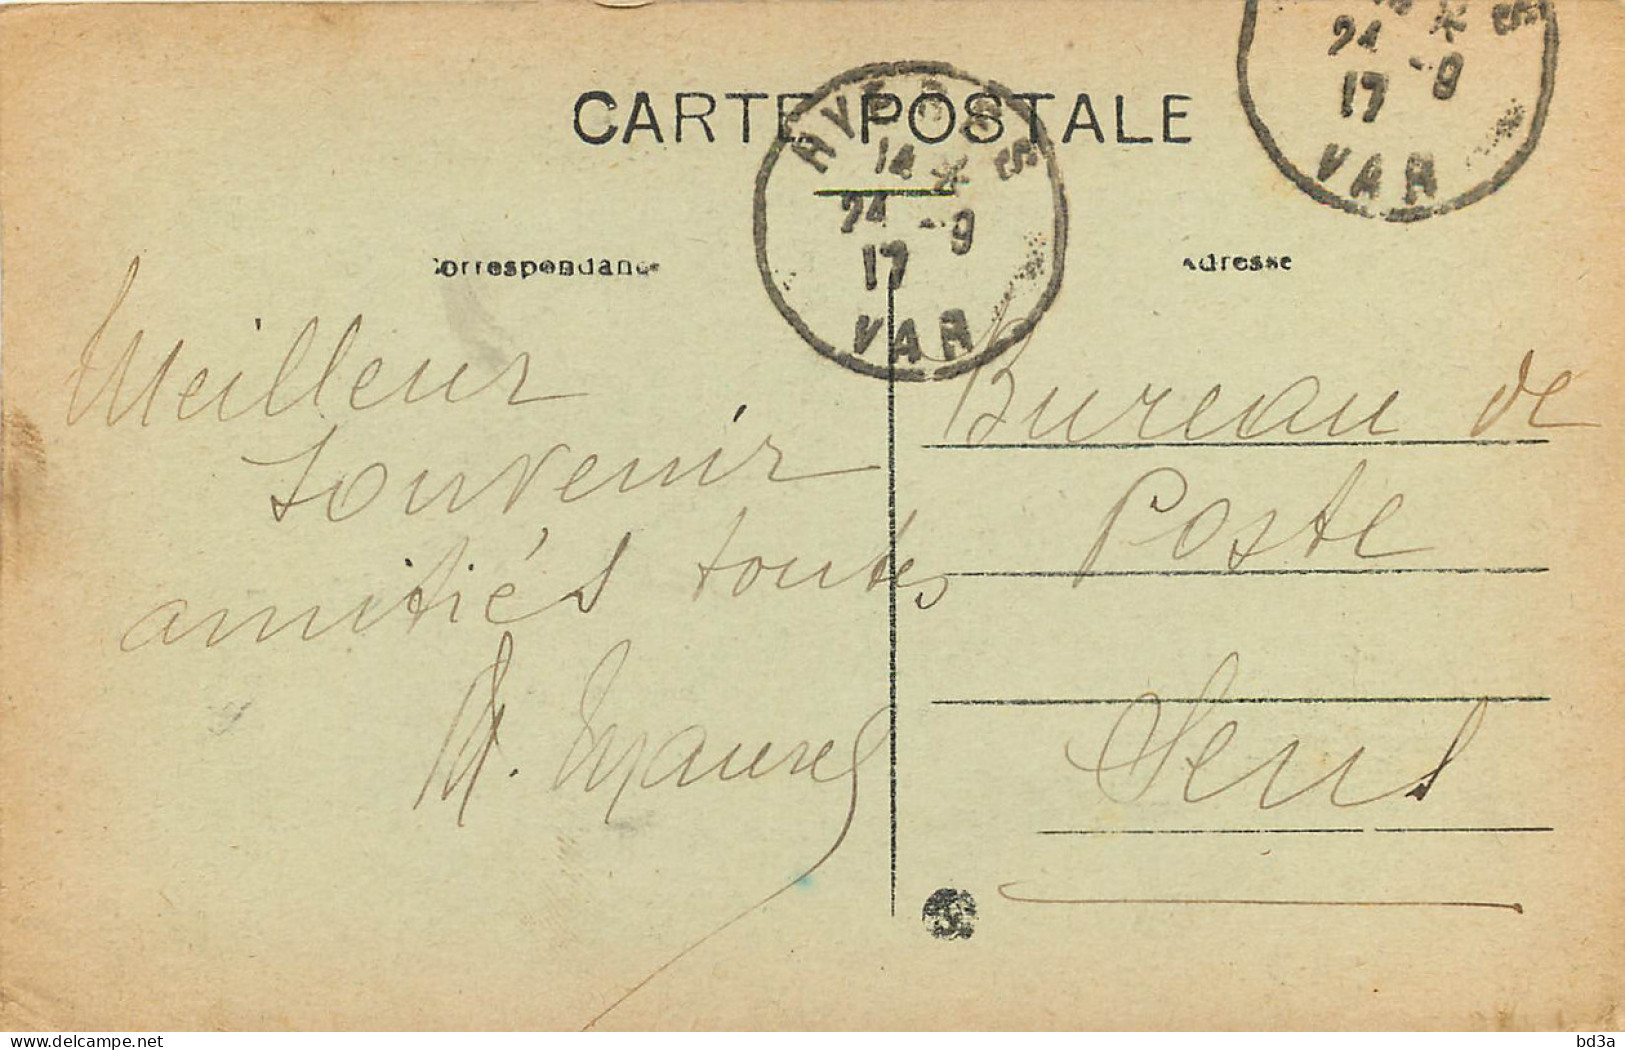 CARTE POSTALE
HYERES
14 *
24 - 9
17
VAR
* S
24 - 9
17
VAR
Correspondance
Adresse
Meilleur
Souvenir
amitiés toutes
M. Maurel
Bureau de
Poste
Sens
delcampe.net
bd3a